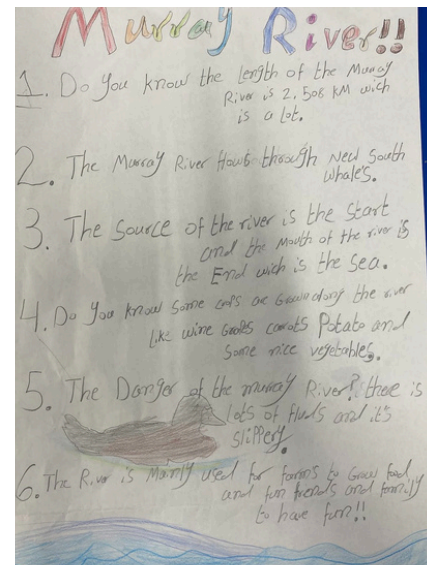 Murray River!!
1. Do you know the length of the Murray
River is 2,508 KM wich
is a lot.
2. The Murray River flows through New South
Whale's.
3. The source of the river is the start
and the Mouth of the river is
the End wich is the sea.
4. Do you know some crops are Grown along the river
like wine Grapes carrots Potato and
some nice vegetables.
5. The Danger of the murray River? there is
lots of fluds and it's
slippery.
6. The River is Mainly used for farms to Grow food
and fun friends and family
to have fun!!